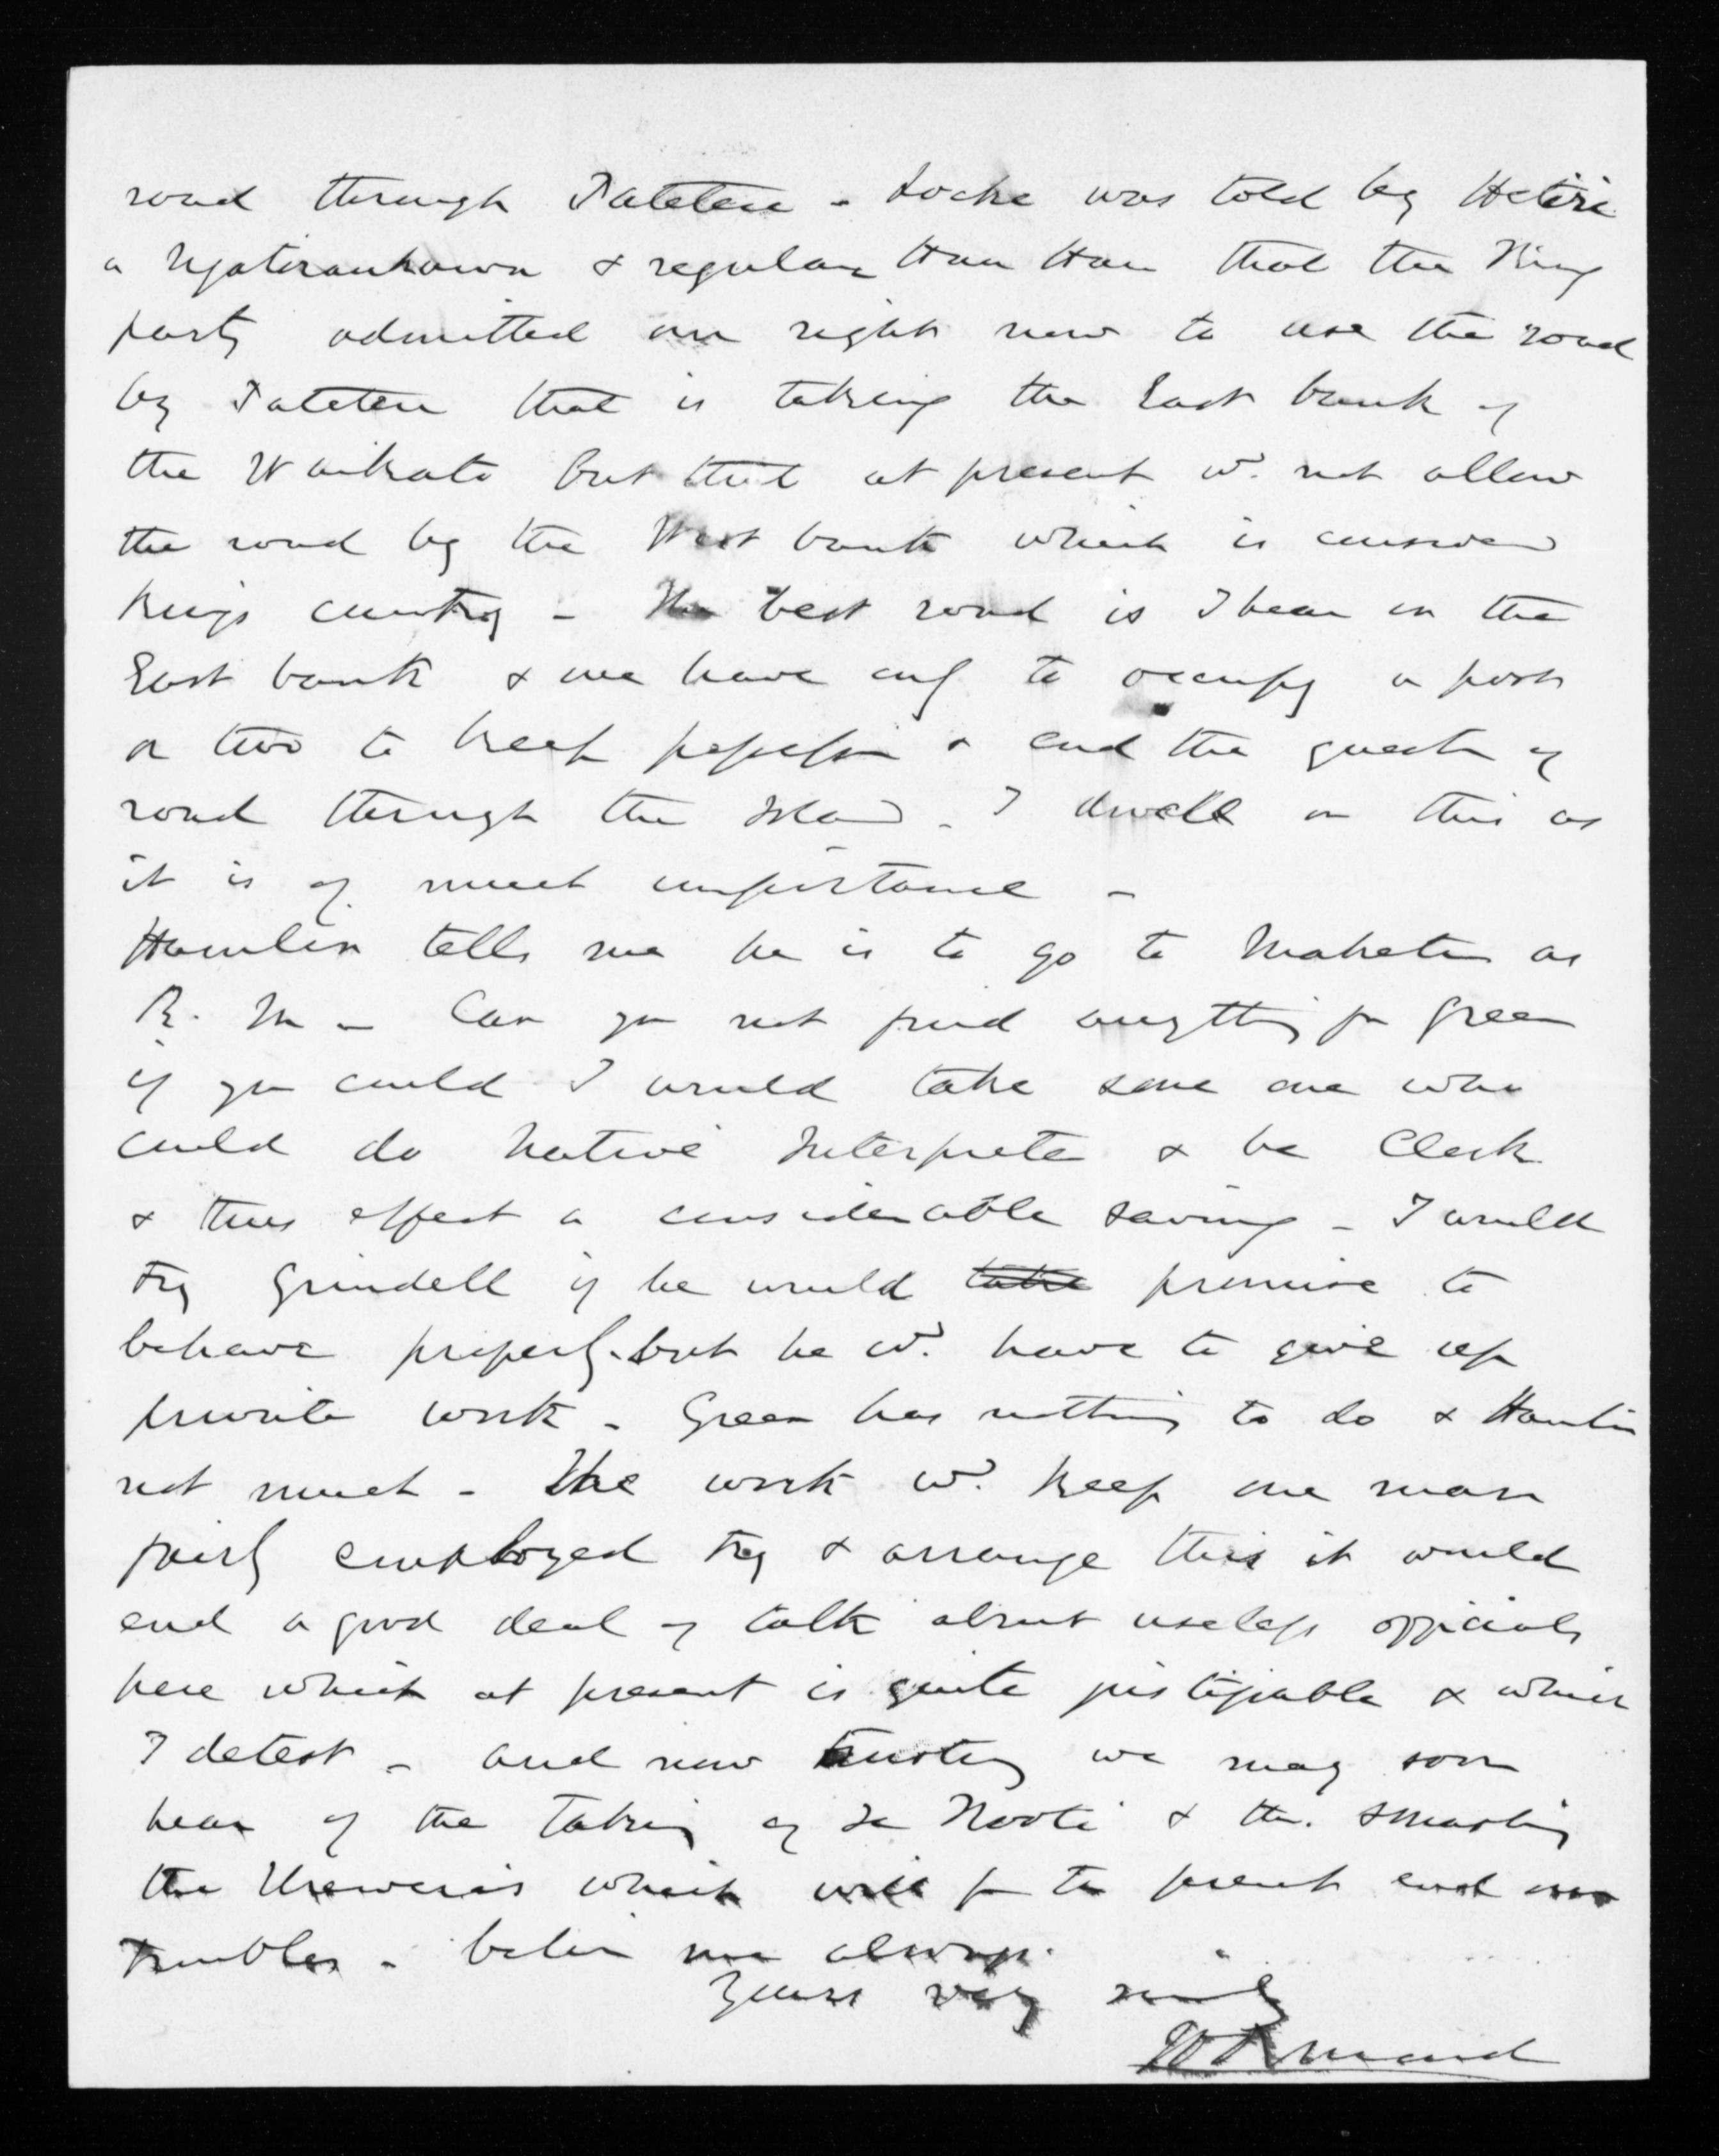 road through Patetere - Locke was told by Hetiri
a Ngatiraukawa & regular Hau Hau that the King
party admitted our right now to use the road
by Patetere that is taking the East bank of
the Waikato but that at present wd. not allow
the road by the West bank which is considered
Kings country - The best road is I hear on the
East bank & we have only to occupy a post
or two to keep possession & end the question of
road through the Island - I dwell on this as
it is of much importance -
Hamlin tells me he is to go to Maketu as
R. M - Can you not find anything for Green
if you could I would take some one who
could do Native Interpreter & be Clerk
& thus effect a considerable saving - I would
try Grindell if he would take promise to
behave properly - but he wd. have to give up
private work - Green has nothing to do & Hamlin
not much - The work wd. keep one man
fairly employed try & arrange this it would
end a good deal of talk about useless officials
here which at present is quite justifiable & which
I detest - and now trusting we may soon
hear of the taking of Te Kooti & the smashing
the Urewera's which will for the present end our
troubles - believe me always
Yours very sincerely
JD Ormond